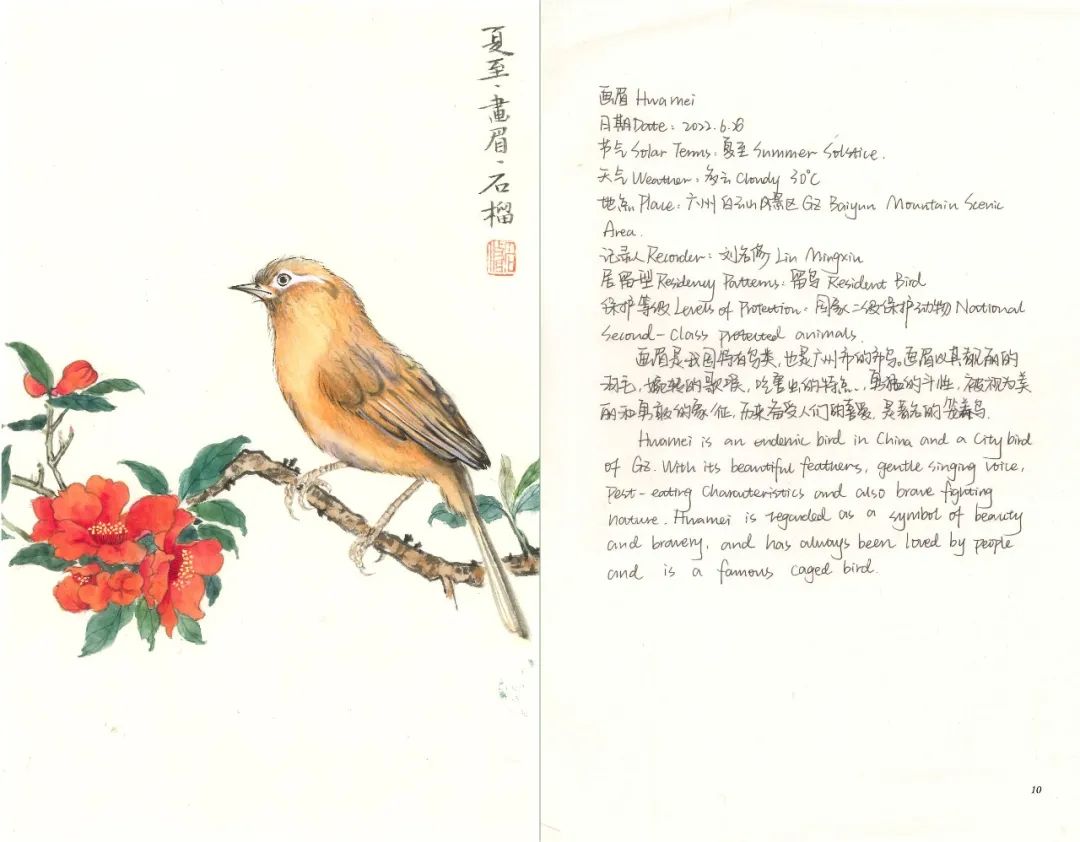 夏至·畫眉·石榴
画眉 Huamei
日期Date: 
节气 Solar Terms: 夏至 Summer Solstice.
天气 Weather: 多云 Cloudy 30℃
地点 Place: 广州白云山风景区 GZ Baiyun Mountain Scenic
Area.
记录人 Recorder: 刘名修 Liu Mingxiu
居留型 Residency Patterns: 留鸟 Resident Bird
保护等级 Levels of Protection: 国家二级保护动物 National
Second-Class protected animals.
画眉是我国特有鸟类,也是广州市的市鸟。画眉以其靓丽的
羽毛,婉转的歌喉,吃害虫的特点,勇猛的斗性,被视为美
丽和勇敢的象征,历来备受人们的喜爱,是著名的笼养鸟.
Huamei is an endemic bird in China and a City bird
of GZ. With its beautiful feathers, gentle singing voice,
Pest-eating Characteristics and also brave fighting
nature. Huamei is regarded as a symbol of beauty
and bravery, and has always been loved by people
and is a famous caged bird.
10